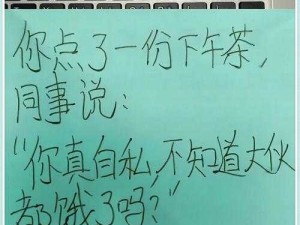 你点了一份下午茶，
同事说：
“你真自私，不知道大伙
都饿了吗？”